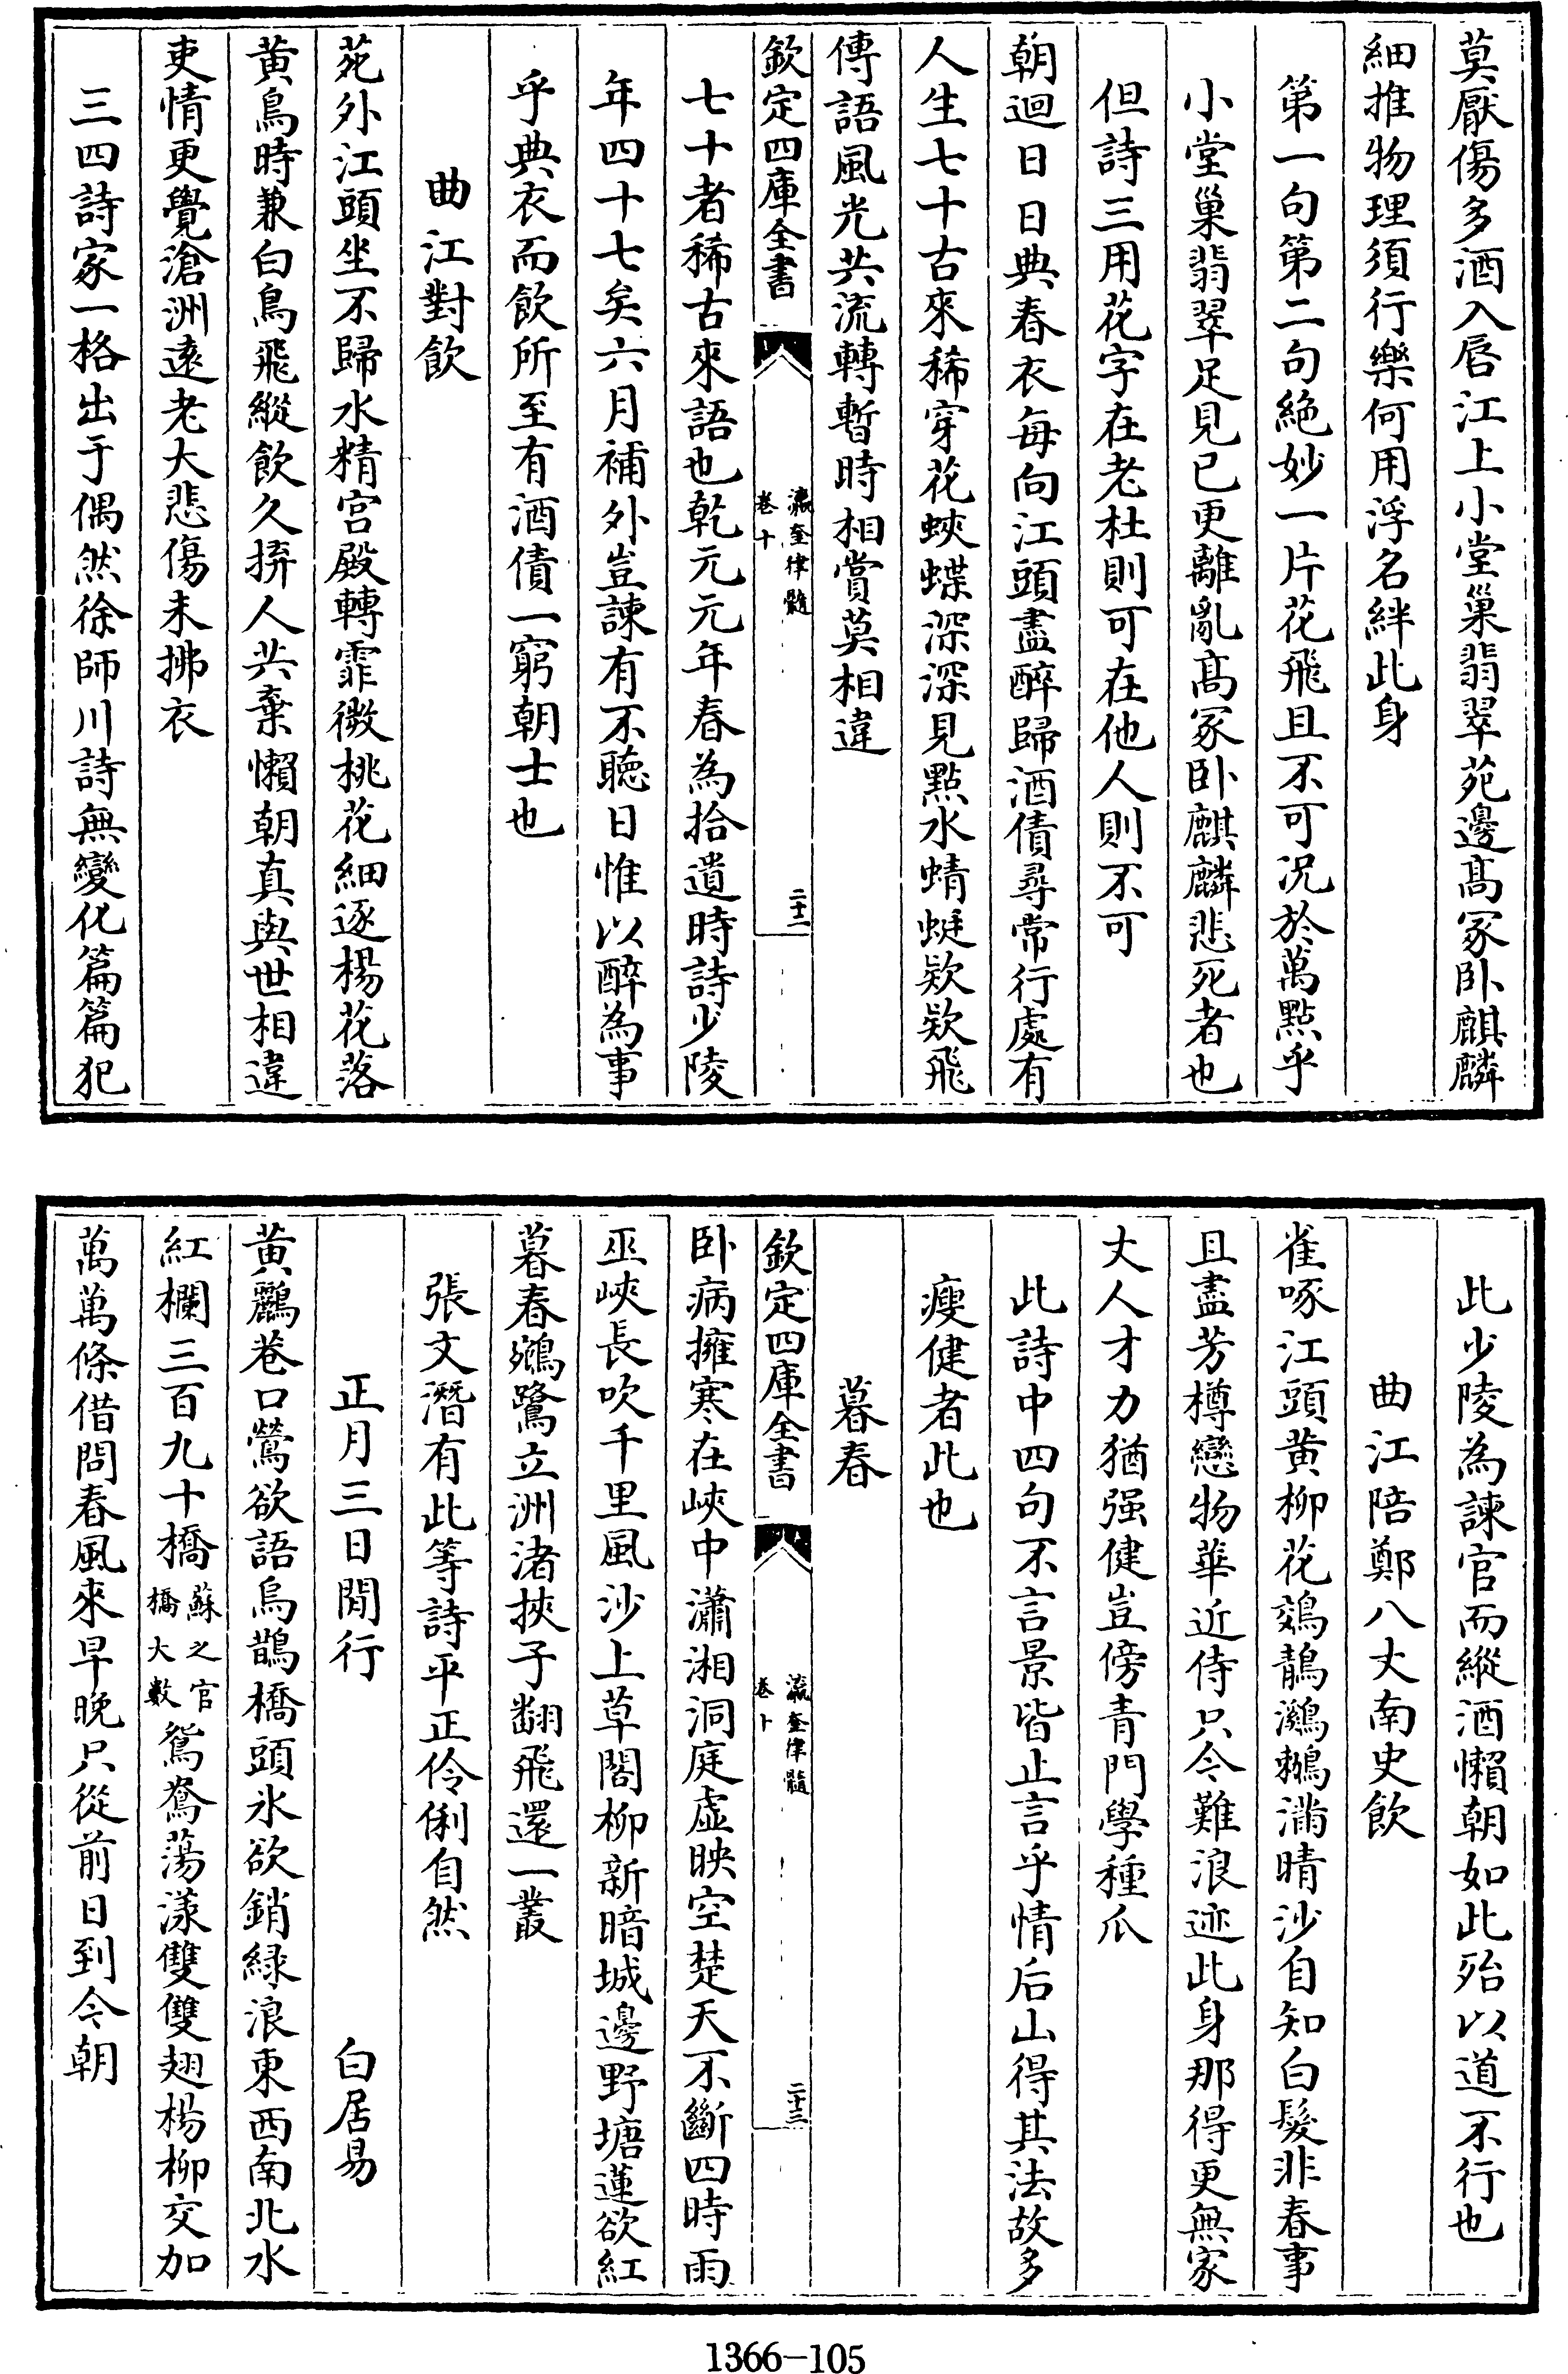 莫厭傷多酒入唇江上小堂巢翡翠苑邊髙冢卧麒麟
細推物理須行樂何用浮名絆此身
第一句第二句絶妙一片花飛且不可況於萬點乎
小堂巢翡翠足見已更離亂髙冢卧麒麟悲死者也
但詩三用花字在老杜則可在他人則不可
朝迴日日典春衣每向江頭盡醉歸酒債尋常行處有
人生七十古來稀穿花蛺蝶深深見點水蜻蜓欵欵飛
傳語風光共流轉暫時相賞莫相違
欽定四庫全書
瀛奎律髓
卷十
二十二
七十者稀古來語也乾元元年春為拾遺時詩少陵
年四十七矣六月補外豈諫有不聽日惟以醉為事
乎典衣而飲所至有酒債一窮朝士也
曲江對飲
苑外江頭坐不歸水精宫殿轉霏微桃花細逐楊花落
黄鳥時兼白鳥飛縱飲久拚人共棄懶朝真與世相違
吏情更覺滄洲逺老大悲傷未拂衣
三四詩家一格出于偶然徐師川詩無變化篇篇犯
此少陵為諫官而縱酒懶朝如此殆以道不行也
曲江陪鄭八丈南史飲
雀啄江頭黄柳花鵁鶄鸂鶒滿晴沙自知白髮非春事
且盡芳樽戀物華近侍只今難浪迹此身那得更無家
丈人才力猶强健豈傍青門學種瓜
此詩中四句不言景皆止言乎情后山得其法故多
瘦健者此也
暮春
欽定四庫全書
瀛奎律髓
卷十
二十三
卧病擁寒在峽中瀟湘洞庭虛映空楚天不斷四時雨
巫峽長吹千里風沙上草閣柳新暗城邊野塘蓮欲紅
暮春鵷鷺立洲渚挾子翻飛還一叢
張文潛有此等詩平正伶俐自然
正月三日閒行　白居易
黄鸝巷口鶯欲語烏鵲橋頭氷欲銷緑浪東西南北水
紅欄三百九十橋蘇之官橋大數鴛鴦蕩漾雙雙翅楊柳交加
萬萬條借問春風來早晚只從前日到今朝
1366-105